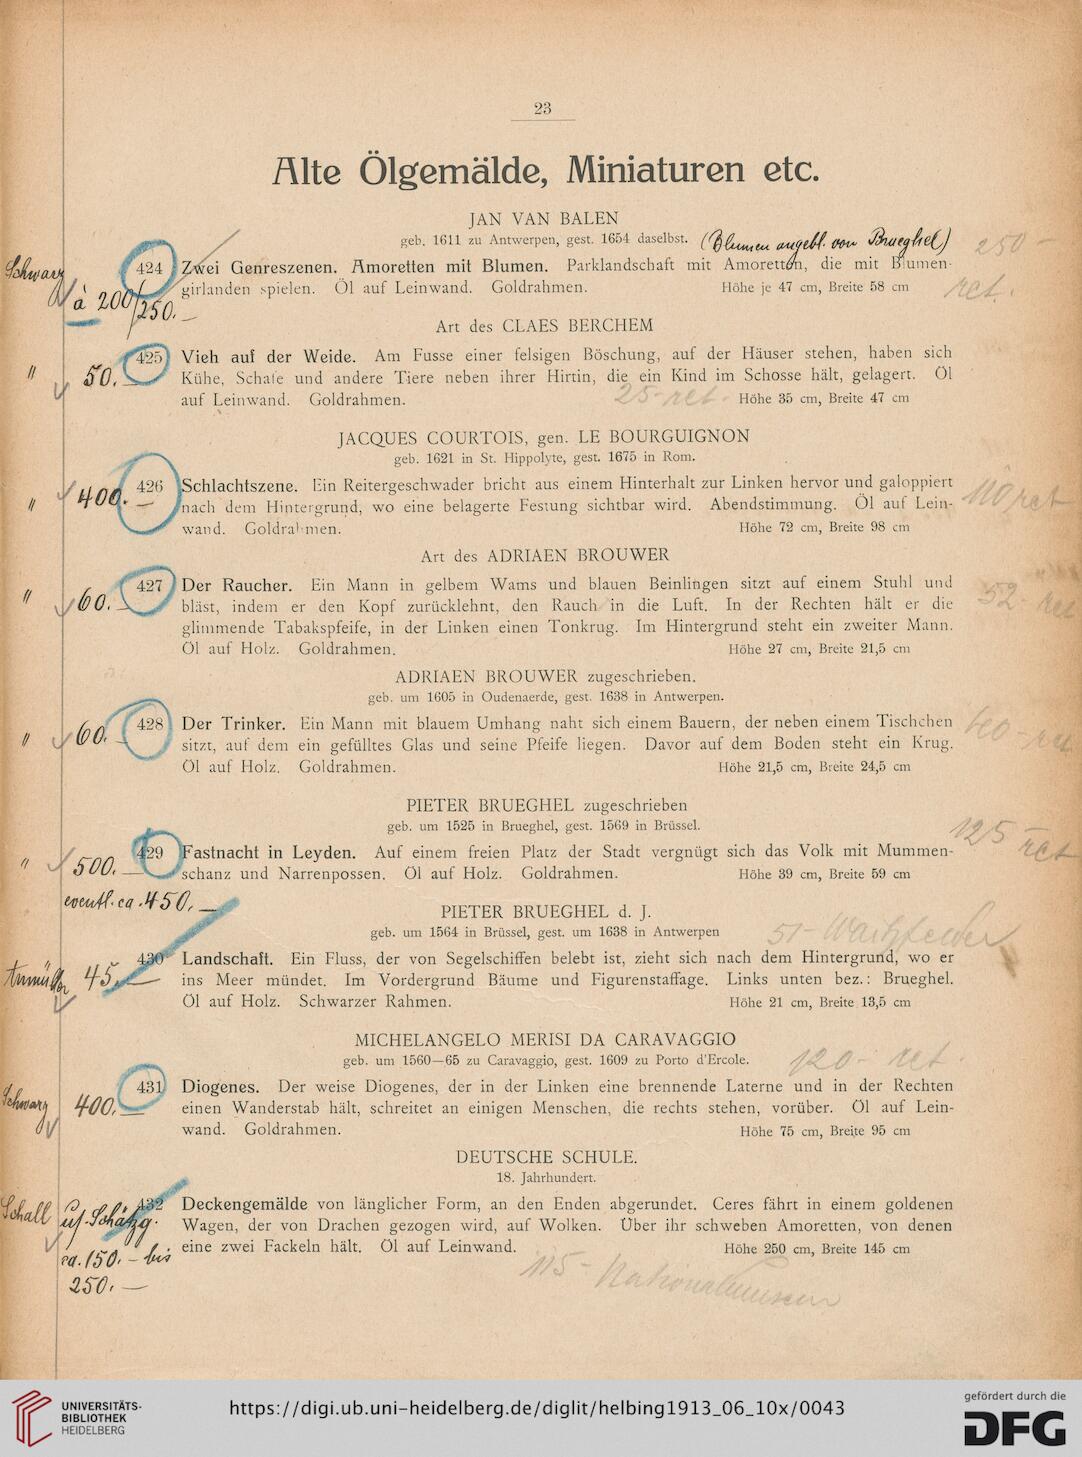 23
Alte Ölgemälde, Miniaturen etc.
JAN VAN BALEN
geb. 1611 zu Antwerpen, gest. 1654 daselbst. (Blumen angebl. von Brueghel) 250 —
Schwarz 424 Zwei Genreszenen. Amoretten mit Blumen. Parklandschaft mit Amoretten, die mit Blumen-
à 200/250.— girlanden spielen. Öl auf Leinwand. Goldrahmen. Höhe je 47 cm, Breite 58 cm ret.
Art des CLAES BERCHEM
425 Vieh auf der Weide. Am Fusse einer felsigen Böschung, auf der Häuser stehen, haben sich
" 50.— Kühe, Schafe und andere Tiere neben ihrer Hirtin, die ein Kind im Schosse hält, gelagert. Öl
auf Leinwand. Goldrahmen. 25- ret. Höhe 35 cm, Breite 47 cm
JACQUES COURTOIS, gen. LE BOURGUIGNON
geb. 1621 in St. Hippolyte, gest. 1675 in Rom.
" 400.— 426 Schlachtszene. Ein Reitergeschwader bricht aus einem Hinterhalt zur Linken hervor und galoppiert ret
nach dem Hintergrund, wo eine belagerte Festung sichtbar wird. Abendstimmung. Öl auf Lein-
wand. Goldrahmen. Höhe 72 cm, Breite 98 cm
Art des ADRIAEN BROUWER
427 Der Raucher. Ein Mann in gelbem Wams und blauen Beinlingen sitzt auf einem Stuhl und
" 60.— bläst, indem er den Kopf zurücklehnt, den Rauch in die Luft. In der Rechten hält er die 52- ret
glimmende Tabakspfeife, in der Linken einen Tonkrug. Im Hintergrund steht ein zweiter Mann.
Öl auf Holz. Goldrahmen. Höhe 27 cm, Breite 21,5 cm
ADRIAEN BROUWER zugeschrieben.
geb. um 1605 in Oudenaerde, gest. 1638 in Antwerpen.
428 Der Trinker. Ein Mann mit blauem Umhang naht sich einem Bauern, der neben einem Tischchen
" 60.— sitzt, auf dem ein gefülltes Glas und seine Pfeife liegen. Davor auf dem Boden steht ein Krug. ret
Öl auf Holz. Goldrahmen. Höhe 21,5 cm, Breite 24,5 cm
PIETER BRUEGHEL zugeschrieben
geb. um 1525 in Brueghel, gest. 1569 in Brüssel.
429 Fastnacht in Leyden. Auf einem freien Platz der Stadt vergnügt sich das Volk mit Mummen- 125 — ret
" 500.— schanz und Narrenpossen. Öl auf Holz. Goldrahmen. Höhe 39 cm, Breite 59 cm
eventl. ca. 450.—
PIETER BRUEGHEL d. J.
geb. um 1564 in Brüssel, gest. um 1638 in Antwerpen 51-
430 Landschaft. Ein Fluss, der von Segelschiffen belebt ist, zieht sich nach dem Hintergrund, wo er
45.— ins Meer mündet. Im Vordergrund Bäume und Figurenstaffage. Links unten bez.: Brueghel.
Öl auf Holz. Schwarzer Rahmen. Höhe 21 cm, Breite 13,5 cm
MICHELANGELO MERISI DA CARAVAGGIO
geb. um 1560—65 zu Caravaggio, gest. 1609 zu Porto d'Ercole. 120- ret.
431 Diogenes. Der weise Diogenes, der in der Linken eine brennende Laterne und in der Rechten
Schwarz 400.— einen Wanderstab hält, schreitet an einigen Menschen, die rechts stehen, vorüber. Öl auf Lein-
wand. Goldrahmen. Höhe 75 cm, Breite 95 cm
DEUTSCHE SCHULE.
18. Jahrhundert.
Schall 432 Deckengemälde von länglicher Form, an den Enden abgerundet. Ceres fährt in einem goldenen
uf. Schätzg. Wagen, der von Drachen gezogen wird, auf Wolken. Über ihr schweben Amoretten, von denen
ca. 150.— bis eine zwei Fackeln hält. Öl auf Leinwand. Höhe 250 cm, Breite 145 cm
250.— 115- Nationalmuseum
UNIVERSITÄTS-
BIBLIOTHEK
HEIDELBERG
https://digi.ub.uni-heidelberg.de/diglit/helbing1913_06_10x/0043
gefördert durch die
DFG